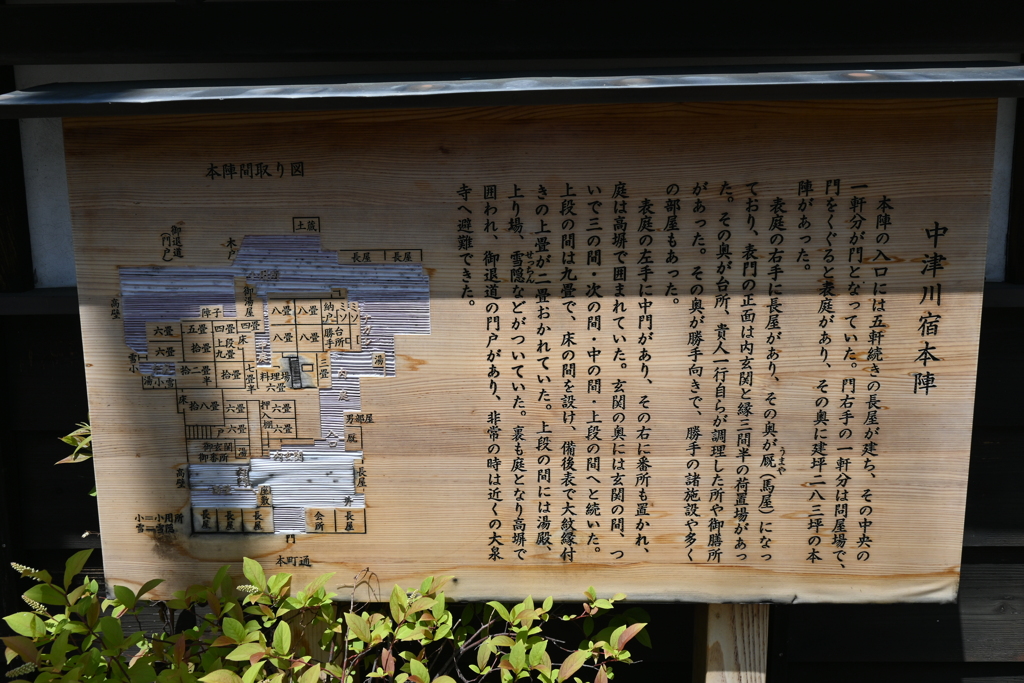 中津川宿本陣
本陣の入口には五軒続きの長屋が建ち、その中央の
一軒分が門となっていた。門右手の一軒分は問屋場で、
門をくぐると表庭があり、その奥に建坪二八三坪の本
陣があった。
表庭の右手に長屋があり、その奥が厩（馬屋）になっ
うまや
ており、表門の正面は内玄関と縁三間半の荷置場があっ
た。その奥が台所、貴人一行自らが調理した所や御膳所
があった。その奥が勝手向きで、勝手の諸施設や多く
の部屋もあった。
表庭の左手に中門があり、その右に番所も置かれ、
庭は高塀で囲まれていた。玄関の奥には玄関の間、つ
いで三の間・次の間・中の間・上段の間へと続いた。
上段の間は九畳で、床の間を設け、備後表で大紋縁付
きの上畳が二畳おかれていた。上段の間には湯殿、
上り場、雪隠などがついていた。裏も庭となり高塀で
せっちん
囲われ、御退道の門戸があり、非常の時は近くの大泉
寺へ避難できた。
本陣間取り図
土蔵
長屋
長屋
木戸
高塀
御湯屋
障子
六畳
五畳
四畳
四畳
床
八畳
八畳
納戸
六畳
拾畳
上段
九畳
八畳
八畳
台所
勝手
湯
拾二畳半
拾畳
七畳半
料理場
六畳
三畳
湯
小
雪
床
拾八畳
六畳
押入
六畳
六畳
棚
六畳
男部屋
厩
御玄関
御番所
高塀
長屋
井
長屋
長屋
長屋
会所
長屋
小＝小用所
雪＝雪隠
門
本町通